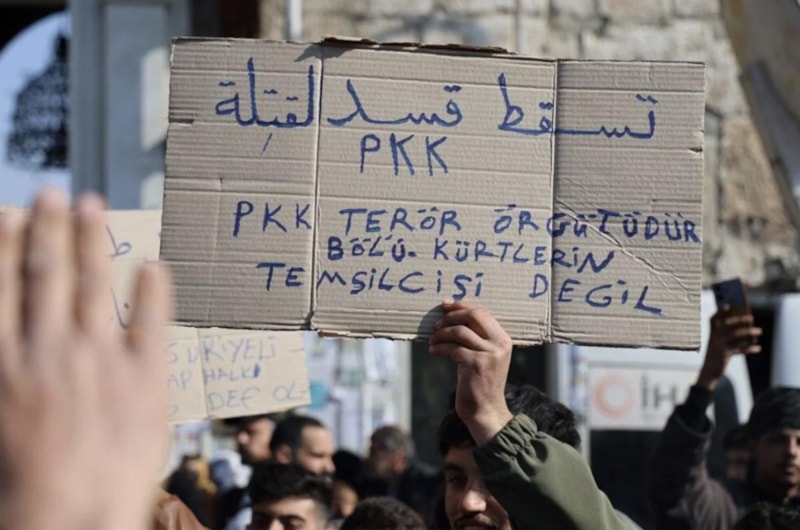 تسقط قسد لقتلة
PKK
PKK TERÖR ÖRGÜTÜDÜR
BÖLÜ. KÜRTLERİN
TEMSİLCİSİ DEGİL
SURİYELİ
HALKI
DEF OL
İH